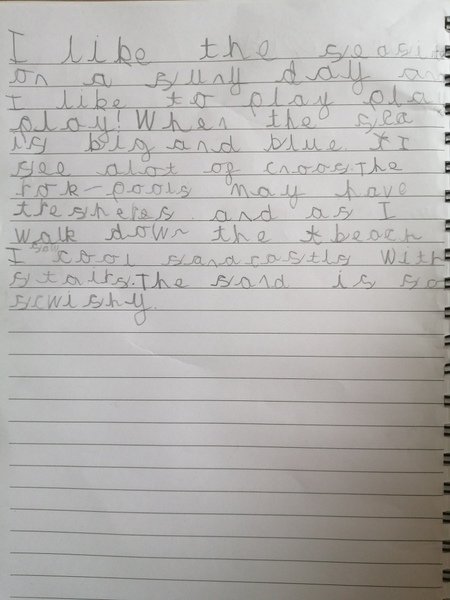 I like the seasi
on a suny day an
I like to play play
play! When the sea
is big and blue. I
see alot of croos. The
rok-pools may have
treshers and as I
walk down the beach
I saw cool sandcastls with
stairs. The sand is so
scwishy.